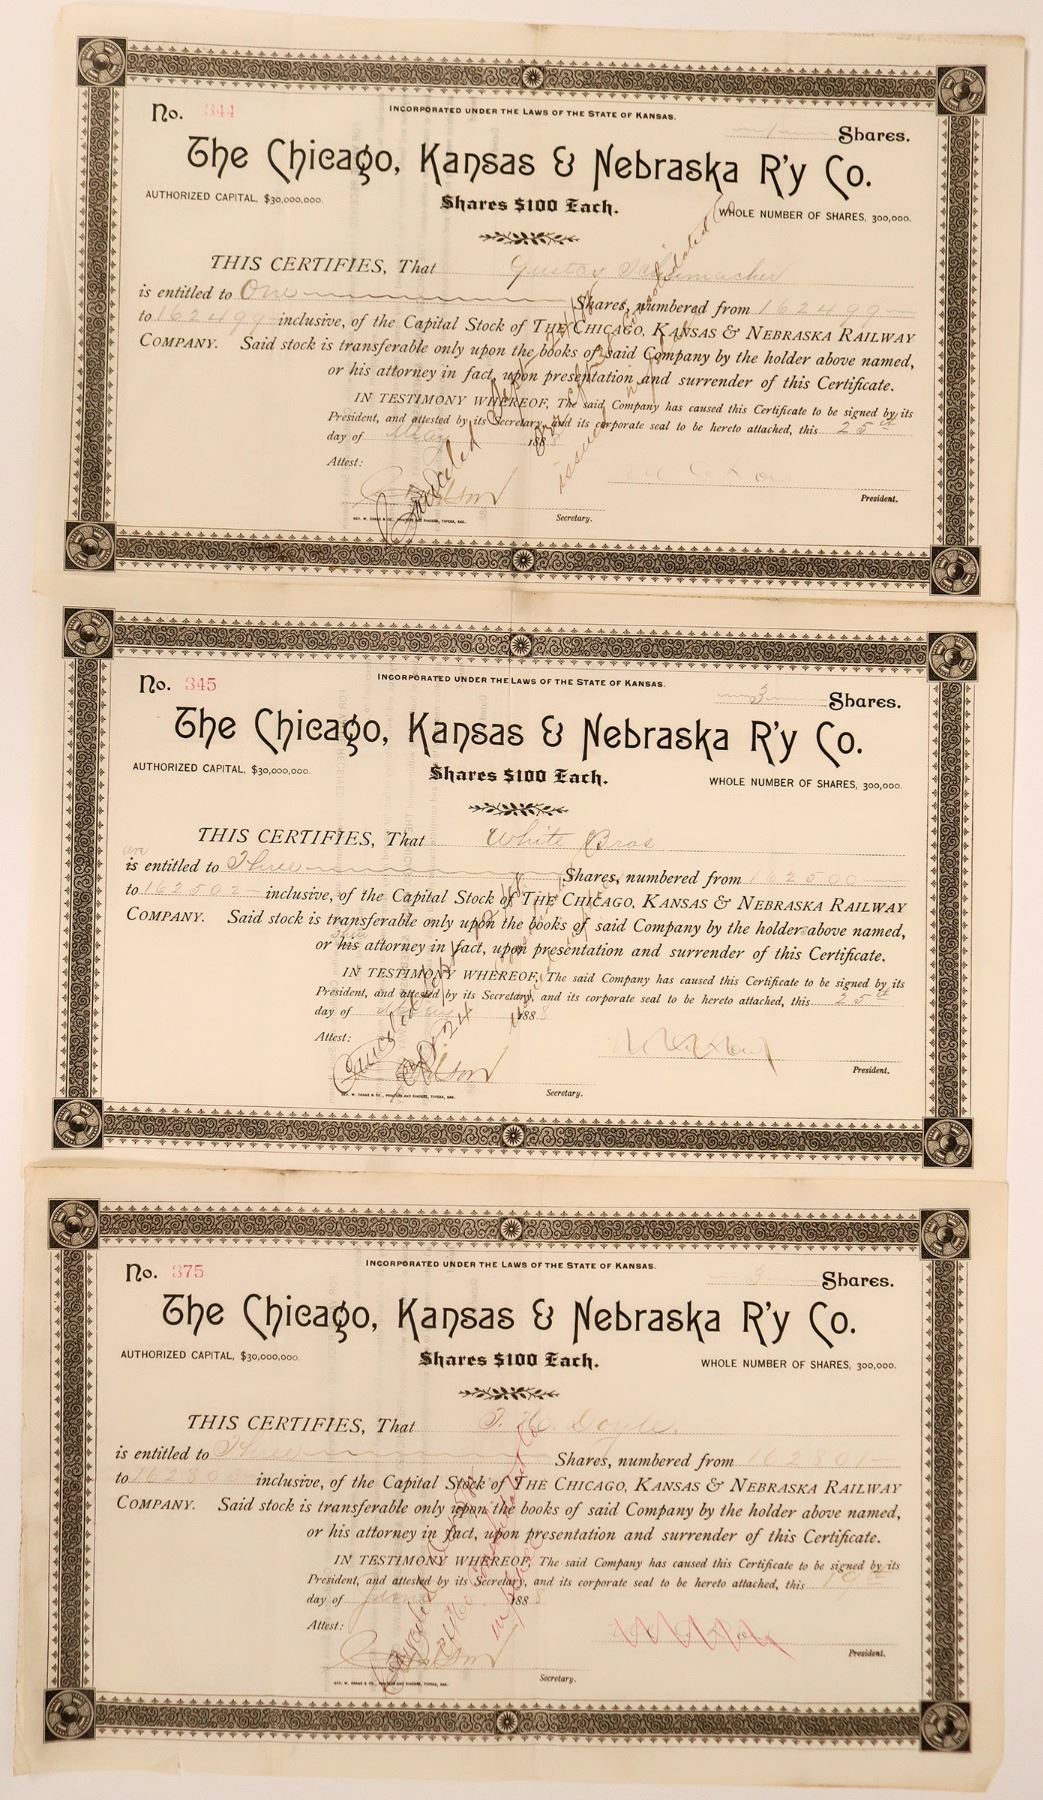 No. 344
INCORPORATED UNDER THE LAWS OF THE STATE OF KANSAS.
1 Shares.
The Chicago, Kansas & Nebraska R'y Co.
AUTHORIZED CAPITAL, $30,000,000.
Shares $100 Each.
WHOLE NUMBER OF SHARES, 300,000.
THIS CERTIFIES, That Gustav Schumacher
is entitled to One Shares, numbered from 162499
to 162499 inclusive, of the Capital Stock of THE CHICAGO, KANSAS & NEBRASKA RAILWAY
COMPANY. Said stock is transferable only upon the books of said Company by the holder above named,
or his attorney in fact, upon presentation and surrender of this Certificate.
IN TESTIMONY WHEREOF, The said Company has caused this Certificate to be signed by its
President, and attested by its Secretary, and its corporate seal to be hereto attached, this 25th
day of May 1888
Attest:
President.
Secretary.
GEO. W. CRANE & CO., PRINTERS AND BINDERS, TOPEKA, KAS.
Canceled
issued
No. 345
INCORPORATED UNDER THE LAWS OF THE STATE OF KANSAS.
3 Shares.
The Chicago, Kansas & Nebraska R'y Co.
AUTHORIZED CAPITAL, $30,000,000.
Shares $100 Each.
WHOLE NUMBER OF SHARES, 300,000.
THIS CERTIFIES, That White Bros
are
is entitled to Three Shares, numbered from 162500
to 162502 inclusive, of the Capital Stock of THE CHICAGO, KANSAS & NEBRASKA RAILWAY
COMPANY. Said stock is transferable only upon the books of said Company by the holders above named,
or his attorney in fact, upon presentation and surrender of this Certificate.
IN TESTIMONY WHEREOF, The said Company has caused this Certificate to be signed by its
President, and attested by its Secretary, and its corporate seal to be hereto attached, this 25th
day of May 1888
Attest:
President.
Secretary.
GEO. W. CRANE & CO., PRINTERS AND BINDERS, TOPEKA, KAS.
Canceled
No. 375
INCORPORATED UNDER THE LAWS OF THE STATE OF KANSAS.
3 Shares.
The Chicago, Kansas & Nebraska R'y Co.
AUTHORIZED CAPITAL, $30,000,000.
Shares $100 Each.
WHOLE NUMBER OF SHARES, 300,000.
THIS CERTIFIES, That T. H. Doyle.
is entitled to Three Shares, numbered from 162801
to 162803 inclusive, of the Capital Stock of THE CHICAGO, KANSAS & NEBRASKA RAILWAY
COMPANY. Said stock is transferable only upon the books of said Company by the holder above named,
or his attorney in fact, upon presentation and surrender of this Certificate.
IN TESTIMONY WHEREOF, The said Company has caused this Certificate to be signed by its
President, and attested by its Secretary, and its corporate seal to be hereto attached, this 19th
day of June 1888
Attest:
President.
Secretary.
GEO. W. CRANE & CO., PRINTERS AND BINDERS, TOPEKA, KAS.
Canceled